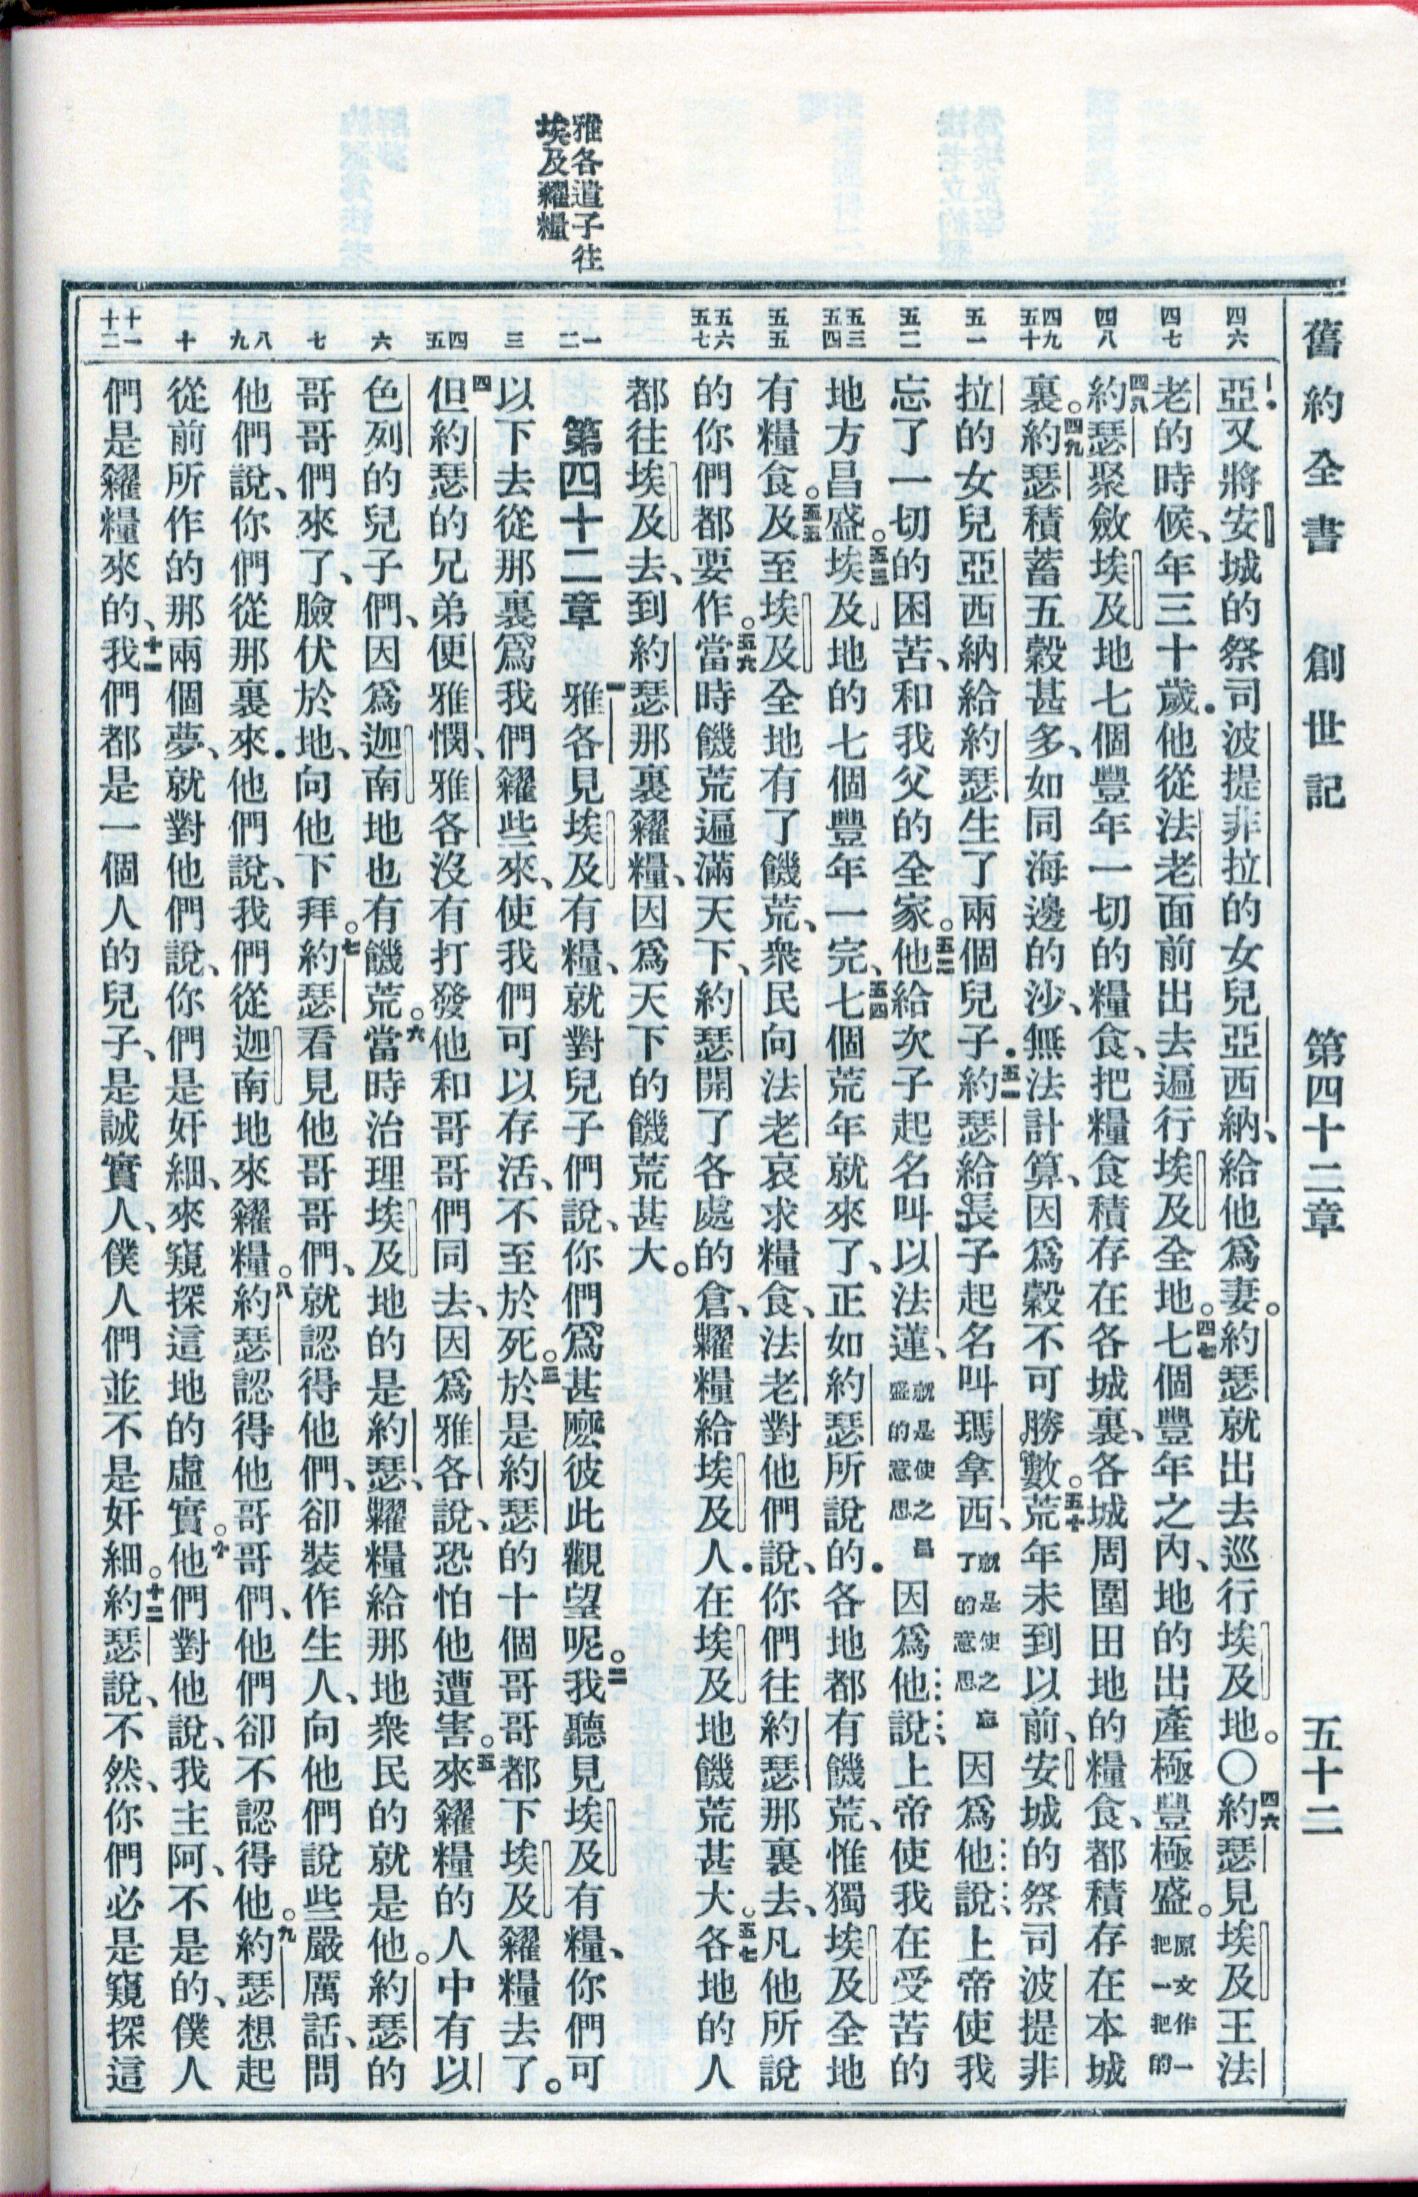 舊約全書 創世記 第四十二章 五十二
雅各遣子往
埃及糴糧
四六
四七
四八
四九
五十
五一
五二
五三
五四
五五
五六
五七
一
二
三
四
五
六
七
八
九
十
十一
十二
亞又將安城的祭司波提非拉的女兒亞西納、給他爲妻。約瑟就出去巡行埃及地。〇四六約瑟見埃及王法
老的時候、年三十歲．他從法老面前出去遍行埃及全地。四七七個豐年之內、地的出產極豐極盛。原文作一把一把的
四八約瑟聚斂埃及地七個豐年一切的糧食、把糧食積存在各城裏、各城周圍田地的糧食、都積存在本城
裏。四九約瑟積蓄五穀甚多、如同海邊的沙、無法計算、因爲穀不可勝數。五十荒年未到以前、安城的祭司波提非
拉的女兒亞西納給約瑟生了兩個兒子．五一約瑟給長子起名叫瑪拿西、就是使之忘了的意思因爲他說上帝使我
忘了一切的困苦、和我父的全家。五二他給次子起名叫以法蓮、就是使之昌盛的意思因爲他說上帝使我在受苦的
地方昌盛。五三埃及地的七個豐年一完、五四七個荒年就來了、正如約瑟所說的．各地都有饑荒、惟獨埃及全地
有糧食。五五及至埃及全地有了饑荒、衆民向法老哀求糧食、法老對他們說、你們往約瑟那裏去、凡他所說
的你們都要作。五六當時饑荒遍滿天下、約瑟開了各處的倉、糶糧給埃及人．在埃及地饑荒甚大。五七各地的人
都往埃及去、到約瑟那裏糴糧、因爲天下的饑荒甚大。
第四十二章 一雅各見埃及有糧、就對兒子們說、你們爲甚麽彼此觀望呢。二我聽見埃及有糧、你們可
以下去從那裏爲我們糴些來、使我們可以存活、不至於死。三於是約瑟的十個哥哥都下埃及糴糧去了。
四但約瑟的兄弟便雅憫、雅各沒有打發他和哥哥們同去、因爲雅各說、恐怕他遭害。五來糴糧的人中有以
色列的兒子們、因爲迦南地也有饑荒。六當時治理埃及地的是約瑟、糶糧給那地衆民的就是他。約瑟的
哥哥們來了、臉伏於地、向他下拜。七約瑟看見他哥哥們、就認得他們、卻裝作生人、向他們說些嚴厲話、問
他們說、你們從那裏來．他們說、我們從迦南地來糴糧。八約瑟認得他哥哥們、他們卻不認得他。九約瑟想起
從前所作的那兩個夢、就對他們說、你們是奸細、來窺探這地的虛實。十他們對他說、我主阿、不是的、僕人
們是糴糧來的、十一我們都是一個人的兒子、是誠實人、僕人們並不是奸細。十二約瑟說、不然、你們必是窺探這